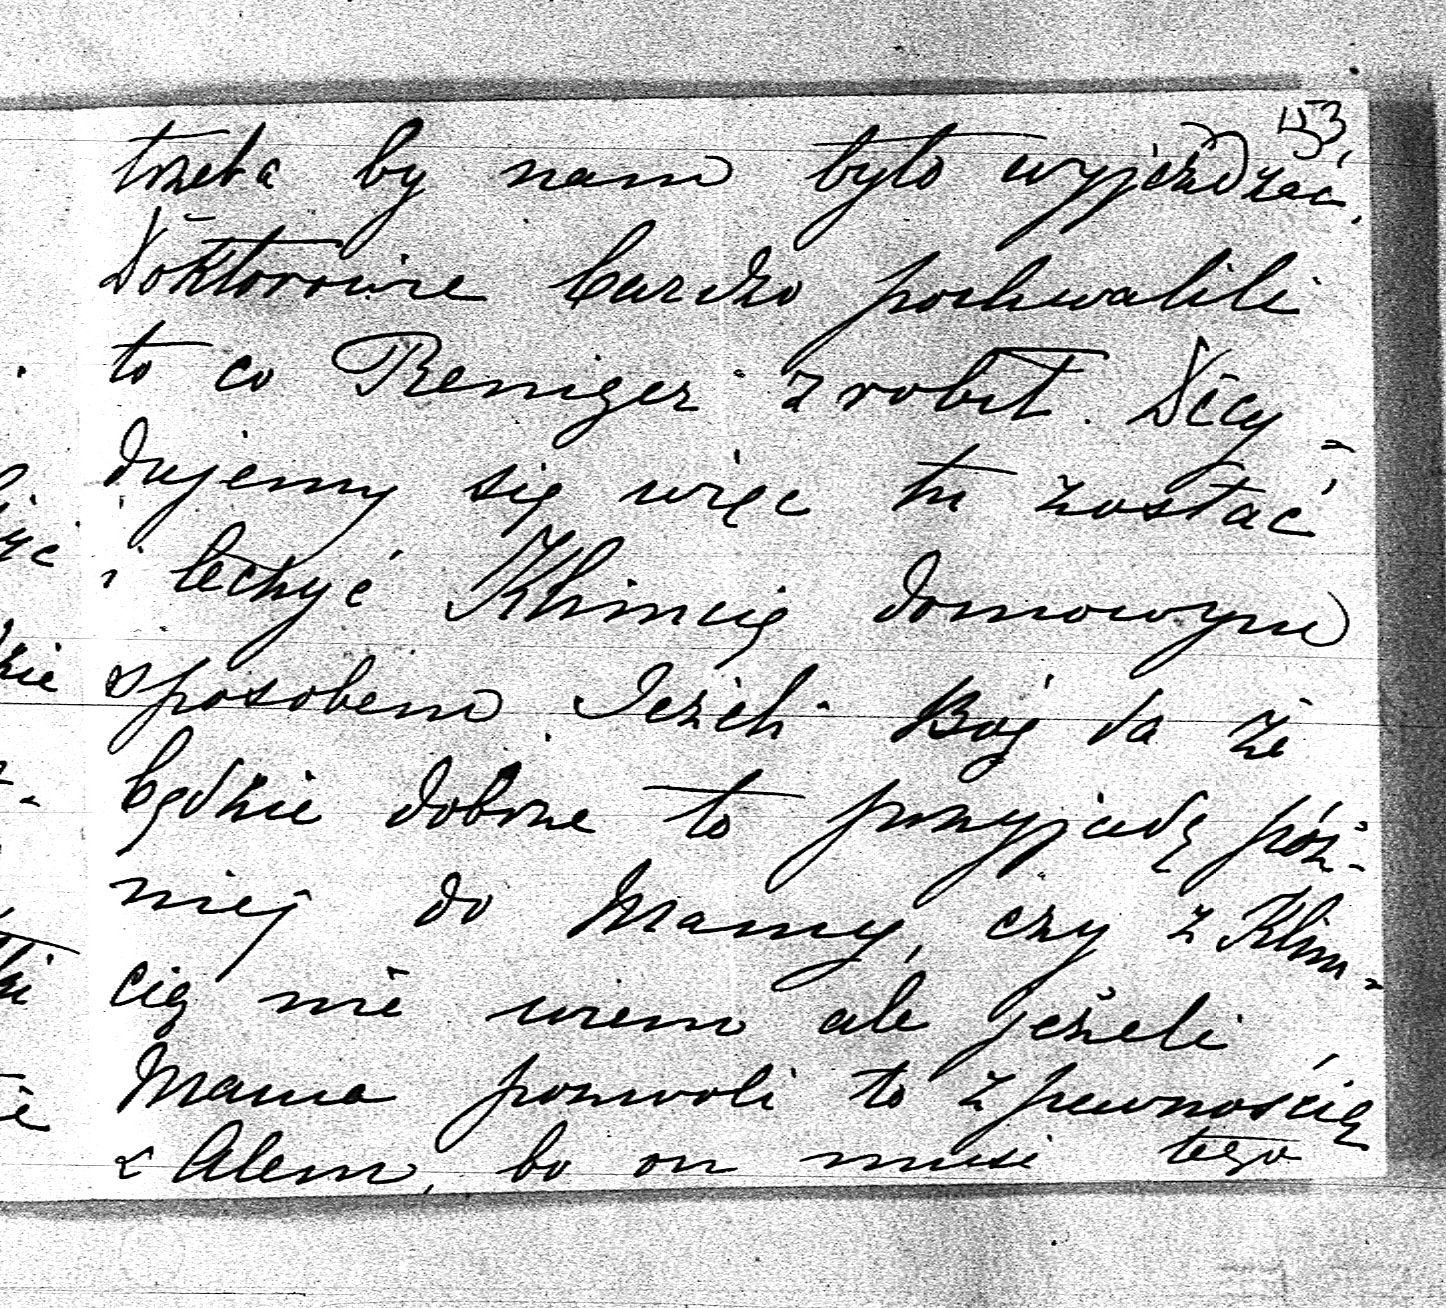 153,
trzeba by nam było wyjeżdżać,
Doktorowie bardzo pochwalili
to co Reniger zrobił. Decy-
dujemy się więc tu zostać
i leczyć Klimcię domowym
sposobem Jeżeli Bóg da że
będzie dobrze to przyjadę póź-
niej do Mamy, czy z Klim-
cią nie wiem ale jeżeli
Mama pozwoli to z pewnością
z Alem, bo on musi tego